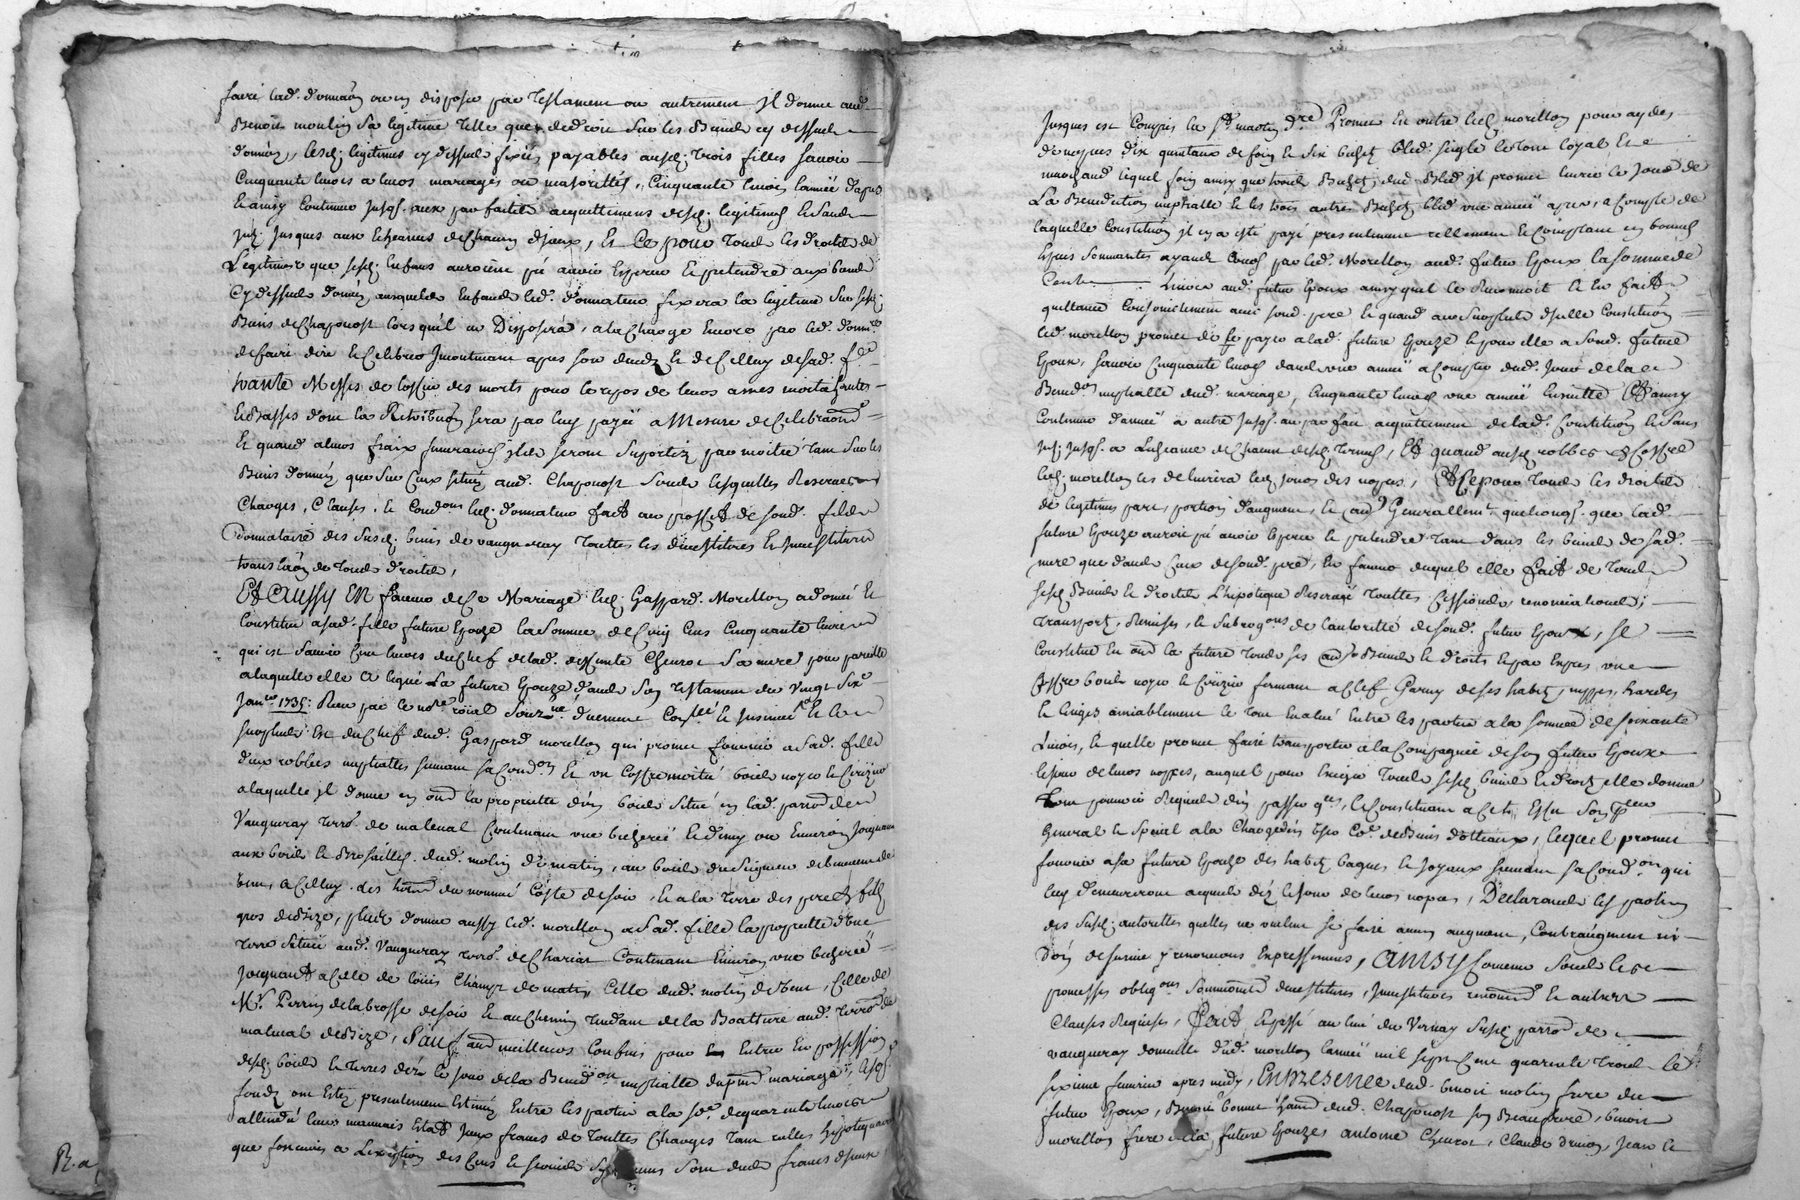 faire lad. donnaōn ou en disposer par Testament ou autrement Il donne aud.
Benoit moulin sa legitime telle que de droit sur les Biens cy dessus
donnés, lesd. legitimes cy dessus fixées payables ausd. trois filles savoir
Cinquante livres a leurs mariages ou majorittés, Cinquante livres l'année d'apres
et ainsy Continuer jusqs. aux parfaites acquittemens desd. legitimes et sans
jusques aux Echeances de Chacun d'jceux, Et Ce pour tous les droits de
Legitimes que sesd. Enfans auroient pû avoir Esperer et pretendre aux biens
Cy dessus donnés, ausquels Enfans led. donnateur fixera la legitime sur sesd.
Biens de Chaponost lorsqu'il en Disposera, a la Charge Encore par led. donn.re
de faire dire et Celebrer Jncontinant apres son decedz et de Celluy de sad. f.e
trante Messes de l'office des morts pour le repos de leurs ames moitié hautes
et Basses dont la Retribuōn sera par luy payée a Mesure de Celebraōn
Et quand a leurs fraix funeraires jls seront Suportez par moitié tant sur les
Biens donnés que sur Ceux situés aud. Chaponost Sous lesquelles Reserves
Charges, Clauses, et Condōns led. donnateur fait au proffit de sond. fils
Donnataire des susd. biens de vaugneray touttes les devestitures et Jnvestitures
translaōn de tous droits,
Et Aussy En faveur de Ce Mariage led. Gaspard Morellon a donné et
Constitué a sad. fille future Epouze la somme de Cinq Cens Cinquante livres
qui est Sauoir Cent livres du Chef de lad. deffunte Chevrot sa mere pour pareille
a laquelle elle a legué la future Epouze dans son Testament du vingt six.e
Janv.er 1735. Receu par le no.re roial Souz.né düement Con.lé et Jnsinué Et le
surplus Est du Chef dud. Gaspard morellon qui promet fournir a sad. fille
deux robbes nuptialles suivant sa Condōn Et un Coffre moitié bois noyer et Cerizier
a laquelle jl donne en outre la proprietté d'un bois situé en lad. parroisse
Vaugneray terro. de malenal Contenant une bicherée Et demy ou Environ Joignant
aux bois et Brosailles dud. molin de matin, au bois du Seigneur de
bise, a Celluy des hoirs du nommé Coste de soir, Et a la terre des pere et fils
gros de Bize, plus donne aussy led. morellon a sad. fille la proprietté d'une
terre située aud. Vaugneray terro. de Chariat Contenant Environ une bicherée
Joignant a Celle de Loüis Champt de matin, Celle dud. molin de bise, Celle de
M.r Perrin de la brosse de soir et au Chemin tendant de la Boatture aud. terro. de
malenal de Bize, Sauf autres meilleurs Confins pour Entrer En possession
desd. bois et terres dez le jour de la Benedion nuptialle du pnt mariage, lesqs.
fonds ont Estez presentement Estimés Entre les parties a la so.e de quarante livres
attendu leur mauvais Estat Jceux francs de touttes Charges tant réelles hypotequaires
que foncieres a L'exception des Cens et servis Sy aucuns sont dûs francs d'jceux
R. a
Jusques Et Compris la St. martin d.re Promet En outre led. morellon pour aydes
de nopces Dix quintaux de foin et six bichets bled seigle le tout loyal et
marchand lequel foin ainsy que trois Bichets dud. Bled jl promet livrer le Jour de
La Benediction nuptialle et les trois autres Bichets bled une année apres, a Compte de
laquelle Constitution jl en a esté payé presentement réellement et Comptant en bonnes
Espces sonnantes ayant Cours par led. Morellon aud. futur Epoux la somme de
Cent Livres aud. futur Epoux ainsy qu'il le Reconnoit et En fait
quittance Conjointement avec sond. pere Et quand au surplus d'jcelle Constitution
led. morellon promet de le payer a lad. future Epouze Et pour elle a sond. futur
Epoux, savoir Cinquante livres dans une année a Compter dud. Jour de la
Benedōn nuptialle dud. mariage, Cinquante livres une année Ensuitte Et ainsy
Continuer d'année a autre Jusqs. au parfait acquittement de lad. Constitution et sans
jusqs. a L'echeance de Chacun desd. termes, Et quand ausd. robbes et Coffre
led. morellon les delivrera led. jour des nopces, Et Ce pour tous les droits
de legitimes part, portion d'augment, et autres Generallemt. quelconqs. que lad.
future Epouze auroit pû avoir Esperer et pretendre tant dans les biens de sad.
mere que dans Ceux de sond. pere, En faveur duquel elle fait de tous
sesd. Biens et droits L'hipotique Reservée touttes Cessions, renonciations,
transport, Remises, et subrogōns de l'autorité de sond. futur Epoux, se
Constitue En outre la future tous ses autres Biens et droits Et par Expres une
Coffre bois noyer et Cerizier fermant a Clef Garny de ses habits, nippes, hardes
et linges amiablement le tout Evalué Entre les parties a la somme de soixante
Livres, et quelle promet faire transporter a la Compagnie de son futur Epoux
le jour de leurs nopces, auquel pour Exiger tous sesd. biens et droits elle donne
tout pouvoir Requis d'en passer q.es, le Constituant a Cet Effet son P.eur
General et special a la Charge d'en Estre Co.e de Biens dotteaux, Lequel promet
fournir a sa future Epouze des habits bagues et Joyaux suivant sa Condōn qui
luy demeureront acquis dez le jour de leurs nopces, Declarants les parties
des susd. autorittés quelles ne veulent se faire aucun augment, Contraugment ni
d'on de survie y renonceans Expressement, Ainsy Convenu sous les
promesses obligōns soumissions devestitures, Jnvestitures renonciations Et autres
Clauses Requises, Fait Et passé au lieu du Vernay susd. parro. de
vaugneray domicille dud. morellon l'année mil sept Cent quarente trois Le
sixieme fevrier apres midy, En presence dud. benoit molin frere du
futur Epoux, Benoit bonne habitant dud. Chaponost son Beaufrere, benoit
morellon frere de la future Epouze antoine Chevrot, Claude Jean et